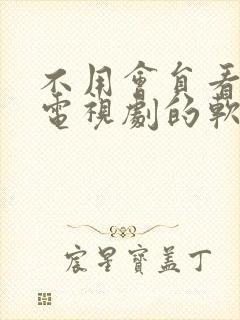 不用會員看
電視劇的軟
宸星寶蓋丁